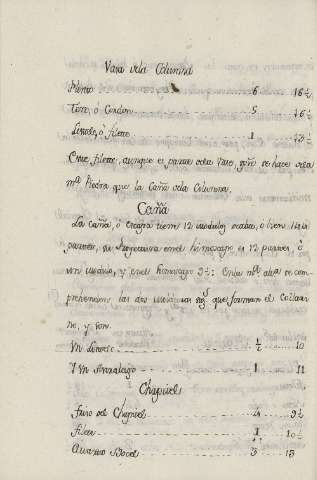 Vasa de la Columna
Plinto 6 16½
Toro, ó Cordon 5 16½
Listelo, ó filete 1
Este filete, aunque es parte de la Vasa, se hace de la
mª Piedra que la Caña de la Columna.
Caña
La caña, ó tiene 12 modulos de alto, ó bien 144
partes, su en el himoscapo es 12 partes, ó
vn modulo, y en el : En la mª altª se com-
prehenden las dos molduras sigˢ que forman el Collari-
no, y son
Vn Listelo ½ 10
Y Vn Astragalo 1 11
Chapitel
Friso del Chapitel 4 9½
filete 1 10½
Quarto Bocel 3 13